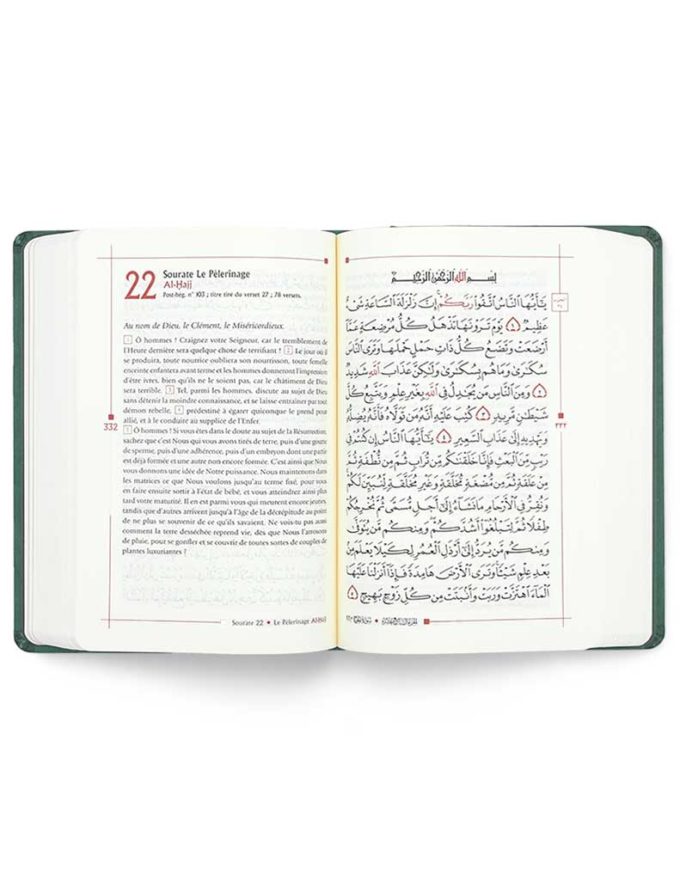 22
Sourate Le Pèlerinage
Al-Ḥajj
Post-hég. n° 103 ; titre tiré du verset 27 ; 78 versets.
Au nom de Dieu, le Clément, le Miséricordieux
1 Ô hommes ! Craignez votre Seigneur, car le tremblement de
l'Heure dernière sera quelque chose de terrifiant ! 2 Le jour où il
se produira, toute nourrice oubliera son nourrisson, toute femelle
enceinte enfantera avant terme et les hommes donneront l'impression
d'être ivres, bien qu'ils ne le soient pas, car le châtiment de Dieu
sera terrible. 3 Tel, parmi les hommes, discute au sujet de Dieu
sans détenir la moindre connaissance, et se laisse entraîner par tout
démon rebelle, 4 prédestiné à égarer quiconque le prend pour
allié, et à le conduire au supplice de l'Enfer.
5 Ô hommes ! Si vous êtes dans le doute au sujet de la Résurrection,
sachez que c'est Nous qui vous avons tirés de terre, puis d'une goutte
de sperme, puis d'une adhérence, puis d'un embryon dont une partie
est déjà formée et une autre non encore formée. C'est ainsi que Nous
vous donnons une idée de Notre puissance. Nous maintenons dans
les matrices ce que Nous voulons jusqu'au terme fixé, pour vous
en faire ensuite sortir à l'état de bébé, et vous atteindrez ainsi plus
tard votre maturité. Il en est parmi vous qui meurent encore jeunes,
tandis que d'autres arrivent jusqu'à l'âge de la décrépitude au point
de ne plus se souvenir de ce qu'ils savaient. Ne vois-tu pas aussi
comment la terre desséchée reprend vie, dès que Nous l'arrosons
de pluie, pour se gonfler et se couvrir de toutes sortes de couples de
plantes luxuriantes ?
332
Sourate 22 • Le Pèlerinage Al-Ḥajj
بِسْمِ ٱللَّهِ ٱلرَّحْمَٰنِ ٱلرَّحِيمِ
يَٰٓأَيُّهَا ٱلنَّاسُ ٱتَّقُوا۟ رَبَّكُمْ إِنَّ زَلْزَلَةَ ٱلسَّاعَةِ شَىْءٌ
عَظِيمٌ ١ يَوْمَ تَرَوْنَهَا تَذْهَلُ كُلُّ مُرْضِعَةٍ عَمَّآ
أَرْضَعَتْ وَتَضَعُ كُلُّ ذَاتِ حَمْلٍ حَمْلَهَا وَتَرَى ٱلنَّاسَ
سُكَٰرَىٰ وَمَا هُم بِسُكَٰرَىٰ وَلَٰكِنَّ عَذَابَ ٱللَّهِ شَدِيدٌ
٢ وَمِنَ ٱلنَّاسِ مَن يُجَٰدِلُ فِى ٱللَّهِ بِغَيْرِ عِلْمٍ وَيَتَّبِعُ كُلَّ
شَيْطَٰنٍ مَّرِيدٍ ٣ كُتِبَ عَلَيْهِ أَنَّهُۥ مَن تَوَلَّاهُ فَأَنَّهُۥ يُضِلُّهُۥ
وَيَهْدِيهِ إِلَىٰ عَذَابِ ٱلسَّعِيرِ ٤ يَٰٓأَيُّهَا ٱلنَّاسُ إِن كُنتُمْ فِى
رَيْبٍ مِّنَ ٱلْبَعْثِ فَإِنَّا خَلَقْنَٰكُم مِّن تُرَابٍ ثُمَّ مِن نُّطْفَةٍ ثُمَّ
مِنْ عَلَقَةٍ ثُمَّ مِن مُّضْغَةٍ مُّخَلَّقَةٍ وَغَيْرِ مُخَلَّقَةٍ لِّنُبَيِّنَ لَكُمْ
وَنُقِرُّ فِى ٱلْأَرْحَامِ مَا نَشَآءُ إِلَىٰٓ أَجَلٍ مُّسَمًّى ثُمَّ نُخْرِجُكُمْ
طِفْلًا ثُمَّ لِتَبْلُغُوٓا۟ أَشُدَّكُمْ وَمِنكُم مَّن يُتَوَفَّىٰ
وَمِنكُم مَّن يُرَدُّ إِلَىٰٓ أَرْذَلِ ٱلْعُمُرِ لِكَيْلَا يَعْلَمَ مِنۢ
بَعْدِ عِلْمٍ شَيْـًٔا وَتَرَى ٱلْأَرْضَ هَامِدَةً فَإِذَآ أَنزَلْنَا عَلَيْهَا
ٱلْمَآءَ ٱهْتَزَّتْ وَرَبَتْ وَأَنۢبَتَتْ مِن كُلِّ زَوْجٍۭ بَهِيجٍ ٥
٣٣٢